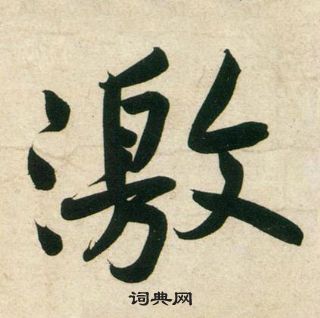 激
词典网